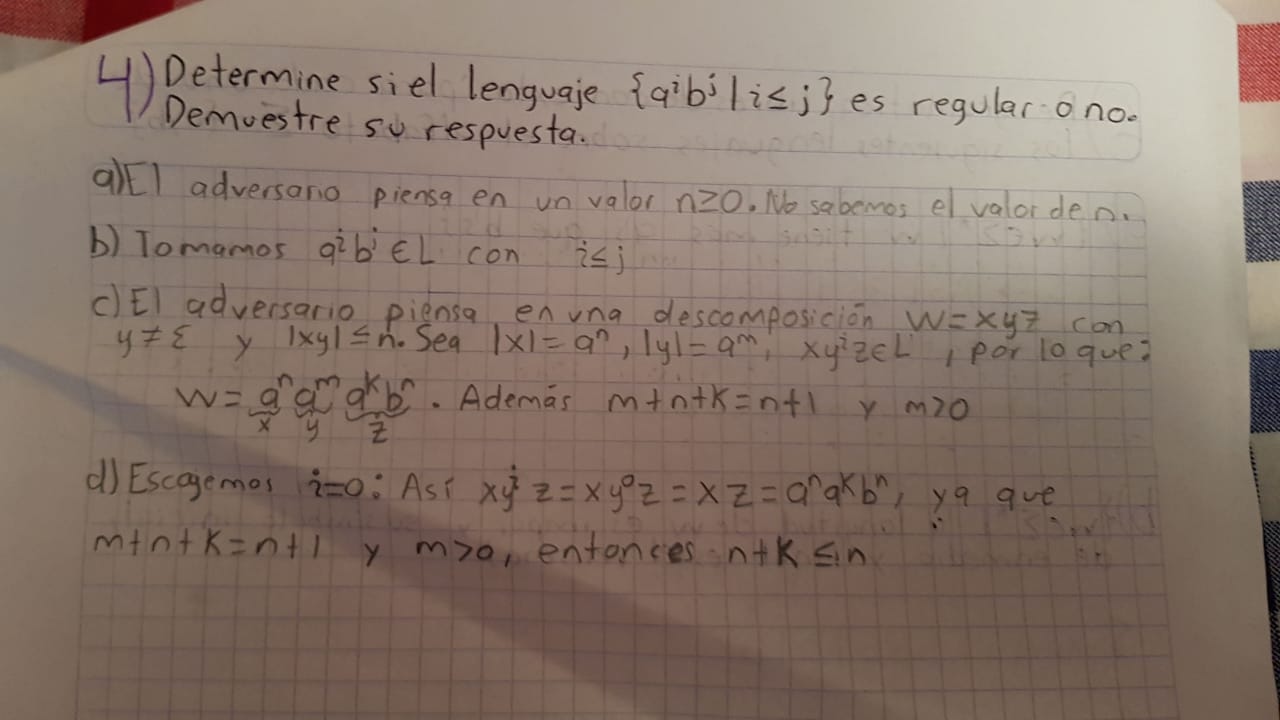 4) Determine si el lenguaje {aⁱbʲ | i ≤ j} es regular o no.
Demuestre su respuesta.
a) El adversario piensa en un valor n≥0. No sabemos el valor de n.
b) Tomamos aⁱbʲ ∈ L con i ≤ j
c) El adversario piensa en una descomposición w = xyz con
y ≠ ε y |xy| ≤ n. Sea |x| = aⁿ, |y| = aᵐ, xyⁱz ∈ L, por lo que:
W = aⁿ aᵐ aᵏbⁿ. Además m+n+k = n+1 y m>0
x y z
d) Escogemos i=0: Así xyⁱz = xy⁰z = xz = aⁿaᵏbⁿ, ya que
m+n+k = n+1 y m>0, entonces n+k ≤ n